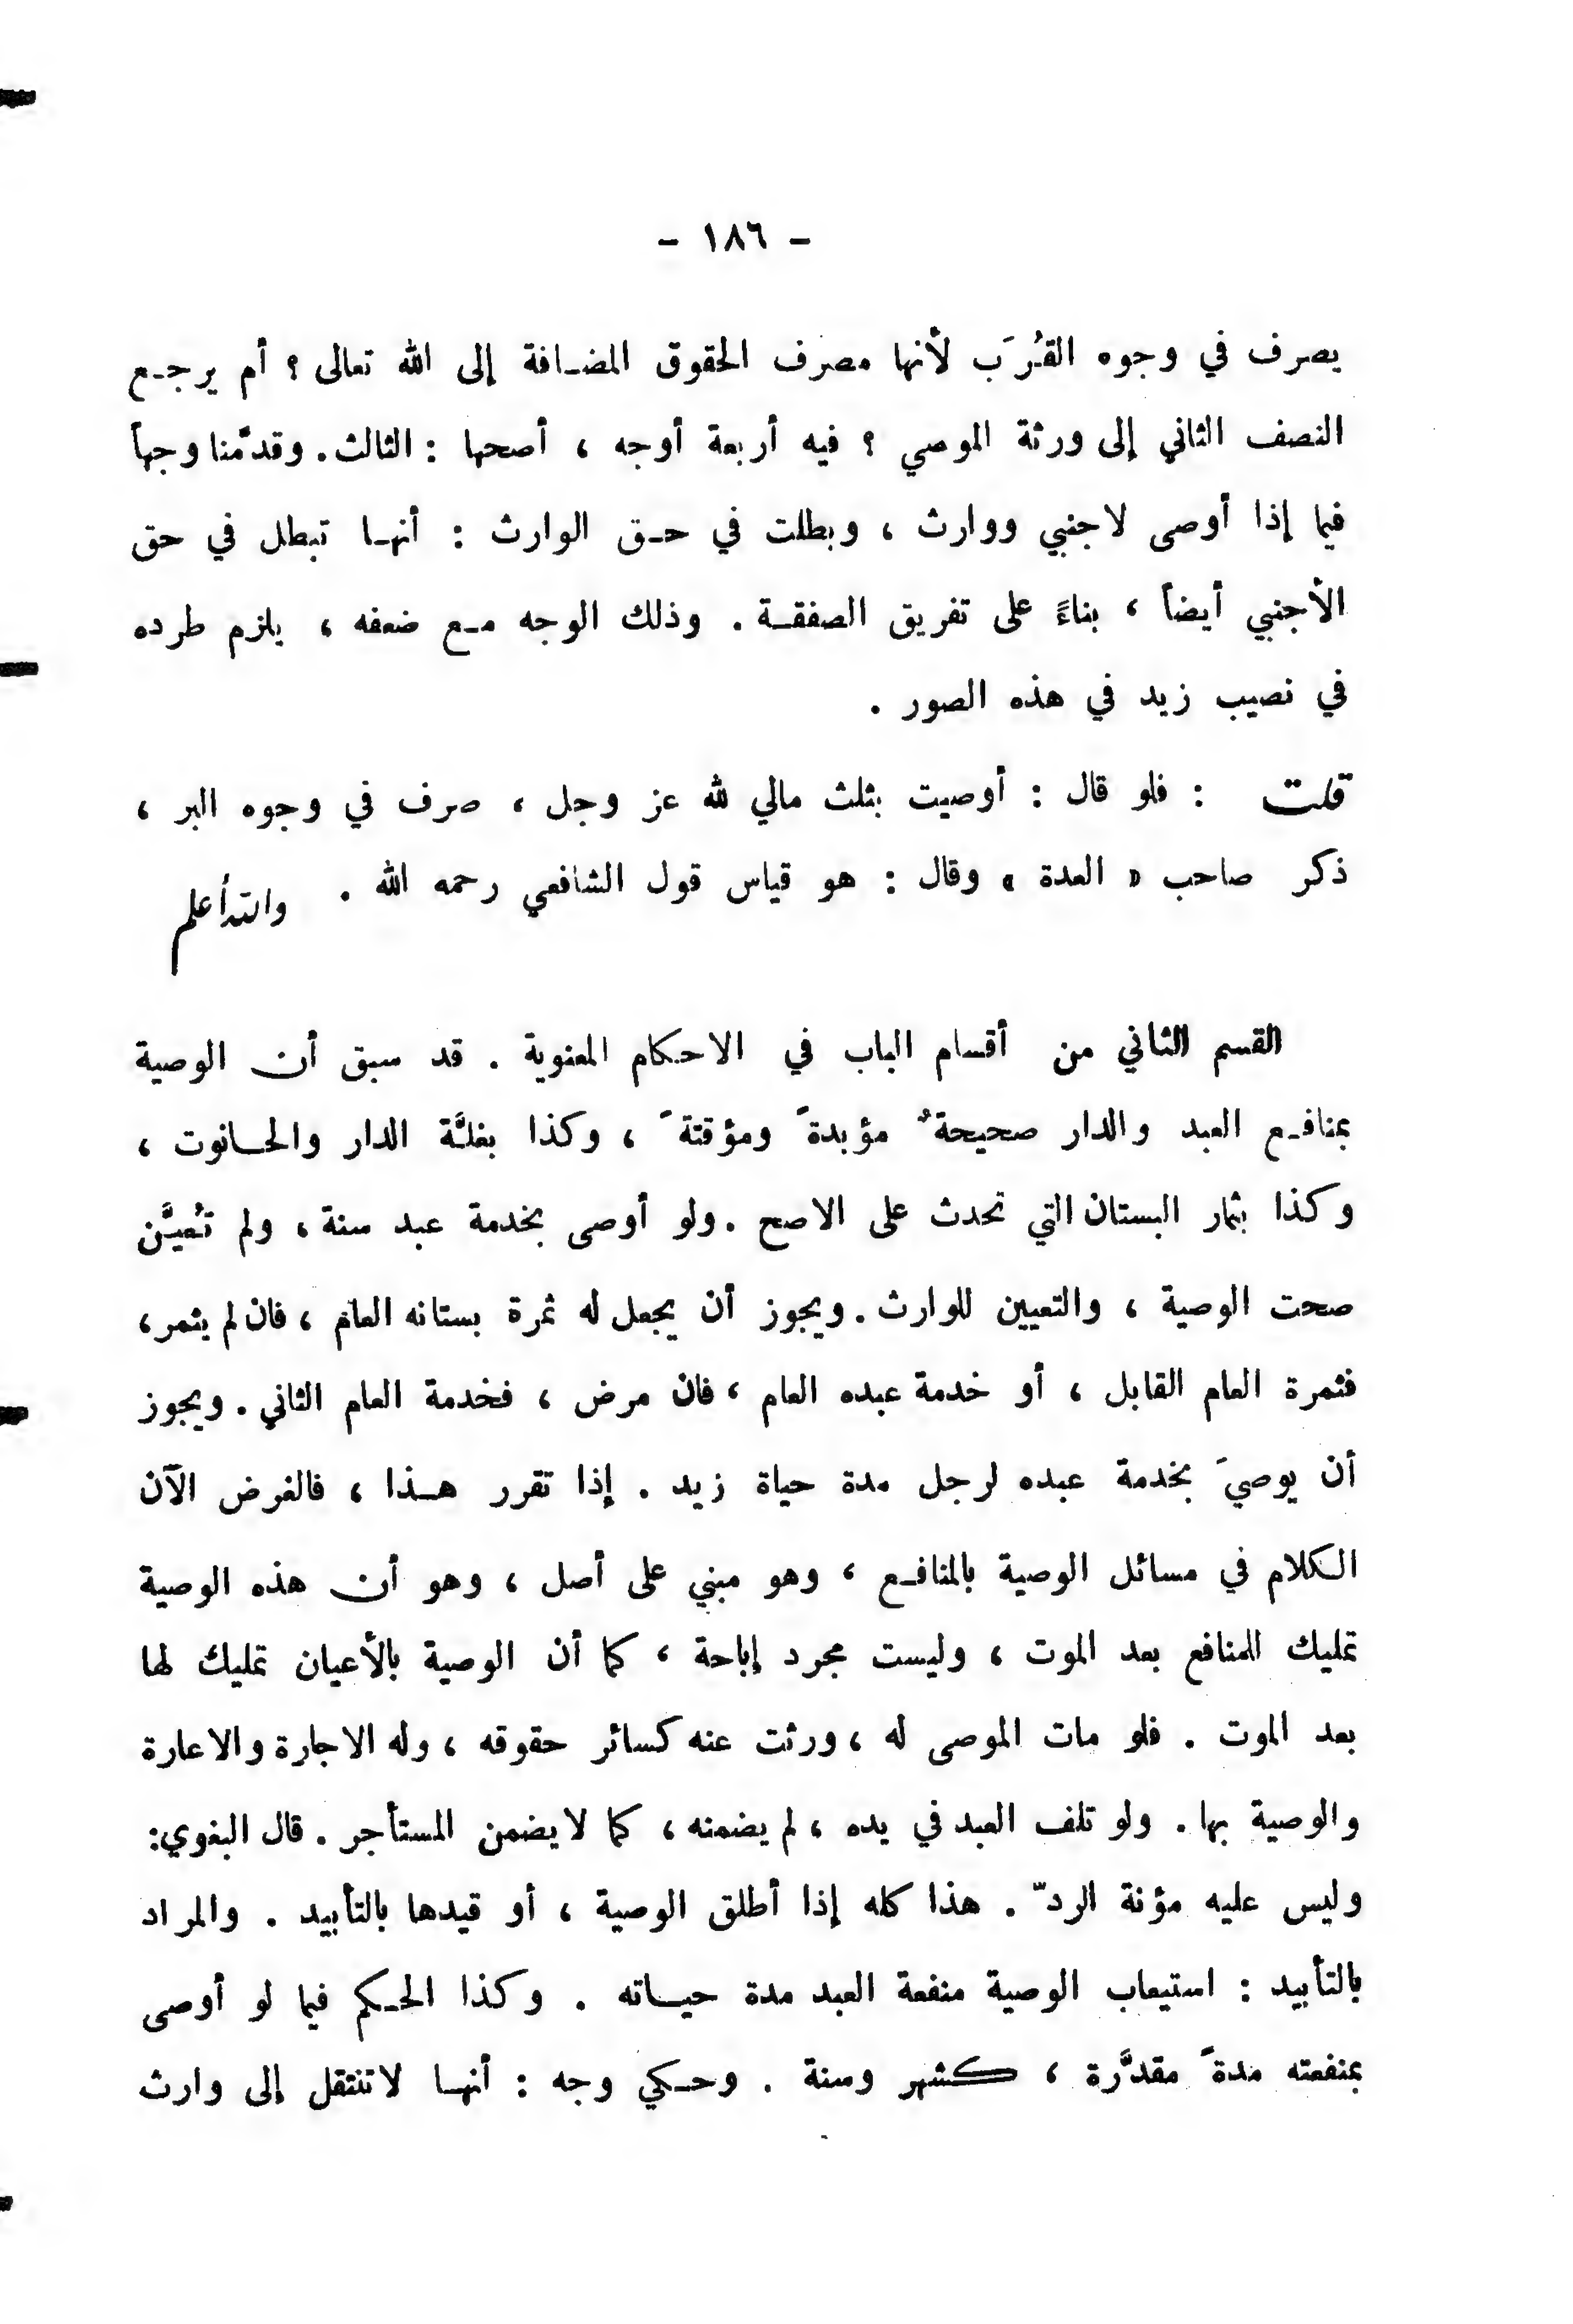 - ١٨٦ -
يصرف في وجوه القُرَب لأنها مصرف الحقوق المضافة إلى الله تعالى ؟ أم يرجع
النصف الثاني إلى ورثة الموصي ؟ فيه أربعة أوجه ، أصحها : الثالث . وقدَّمنا وجهاً
فيما إذا أوصى لاجنبي ووارث ، وبطلت في حق الوارث : أنها تبطل في حق
الأجنبي أيضاً ، بناءً على تفريق الصفقة . وذلك الوجه مع ضعفه ، يلزم طرده
في نصيب زيد في هذه الصور .
قلت : فلو قال : أوصيت بثلث مالي لله عز وجل ، صرف في وجوه البر ،
ذكر صاحب « العدة » وقال : هو قياس قول الشافعي رحمه الله . والله أعلم
القسم الثاني من أقسام الباب في الاحكام المعنوية . قد سبق أن الوصية
بمنافع العبد والدار صحيحةٌ مؤبدةً ومؤقتةً ، وكذا بغلَّة الدار والحانوت ،
وكذا بثمار البستان التي تحدث على الاصح . ولو أوصى بخدمة عبد سنة ، ولم تُعيَّن
صحت الوصية ، والتعيين للوارث . ويجوز أن يجعل له ثمرة بستانه العام ، فان لم يثمر ،
فثمرة العام القابل ، أو خدمة عبده العام ، فان مرض ، فخدمة العام الثاني . ويجوز
أن يوصيَ بخدمة عبده لرجل مدة حياة زيد . إذا تقرر هذا ، فالغرض الآن
الكلام في مسائل الوصية بالمنافع ، وهو مبني على أصل ، وهو أن هذه الوصية
تمليك المنافع بعد الموت ، وليست مجرد إباحة ، كما أن الوصية بالأعيان تمليك لها
بعد الموت . فلو مات الموصى له ، ورثت عنه كسائر حقوقه ، وله الاجارة والاعارة
والوصية بها . ولو تلف العبد في يده ، لم يضمنه ، كما لا يضمن المستأجر . قال البغوي :
وليس عليه مؤنة الردّ . هذا كله إذا أطلق الوصية ، أو قيدها بالتأبيد . والمراد
بالتأبيد : استيعاب الوصية منفعة العبد مدة حياته . وكذا الحكم فيما لو أوصى
بمنفعته مدةً مقدَّرة ، كشهر وسنة . وحكي وجه : أنها لا تنتقل إلى وارث